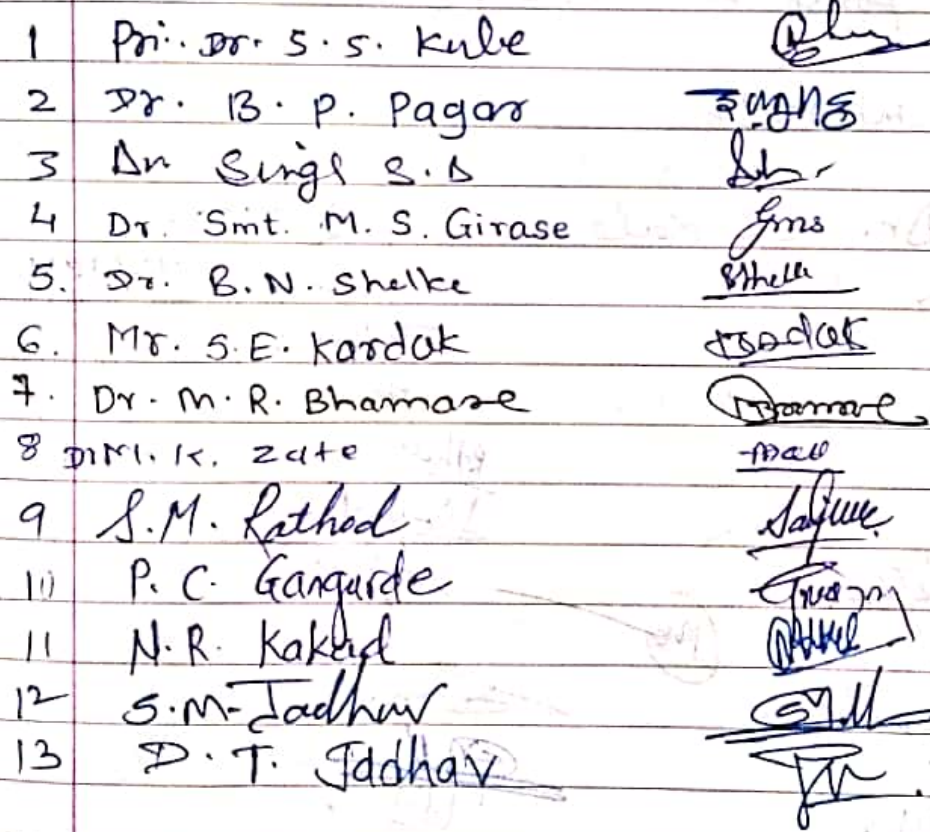 1 Pri. Dr. S. S. Kule
2 Dr. B. P. Pagar
3 Dr Singh S. D
4 Dr. Smt. M. S. Girase Gms
5. Dr. B. N. Shelke Bshelke
6. Mr. S. E. Kardak Kardak
7. Dr. M. R. Bhamare Bhamare
8 Dr M. K. Zate
9 S. M. Rathod
10 P. C. Gangurde
11 N. R. Kakad
12 S. M. Jadhav
13 D. T. Jadhav